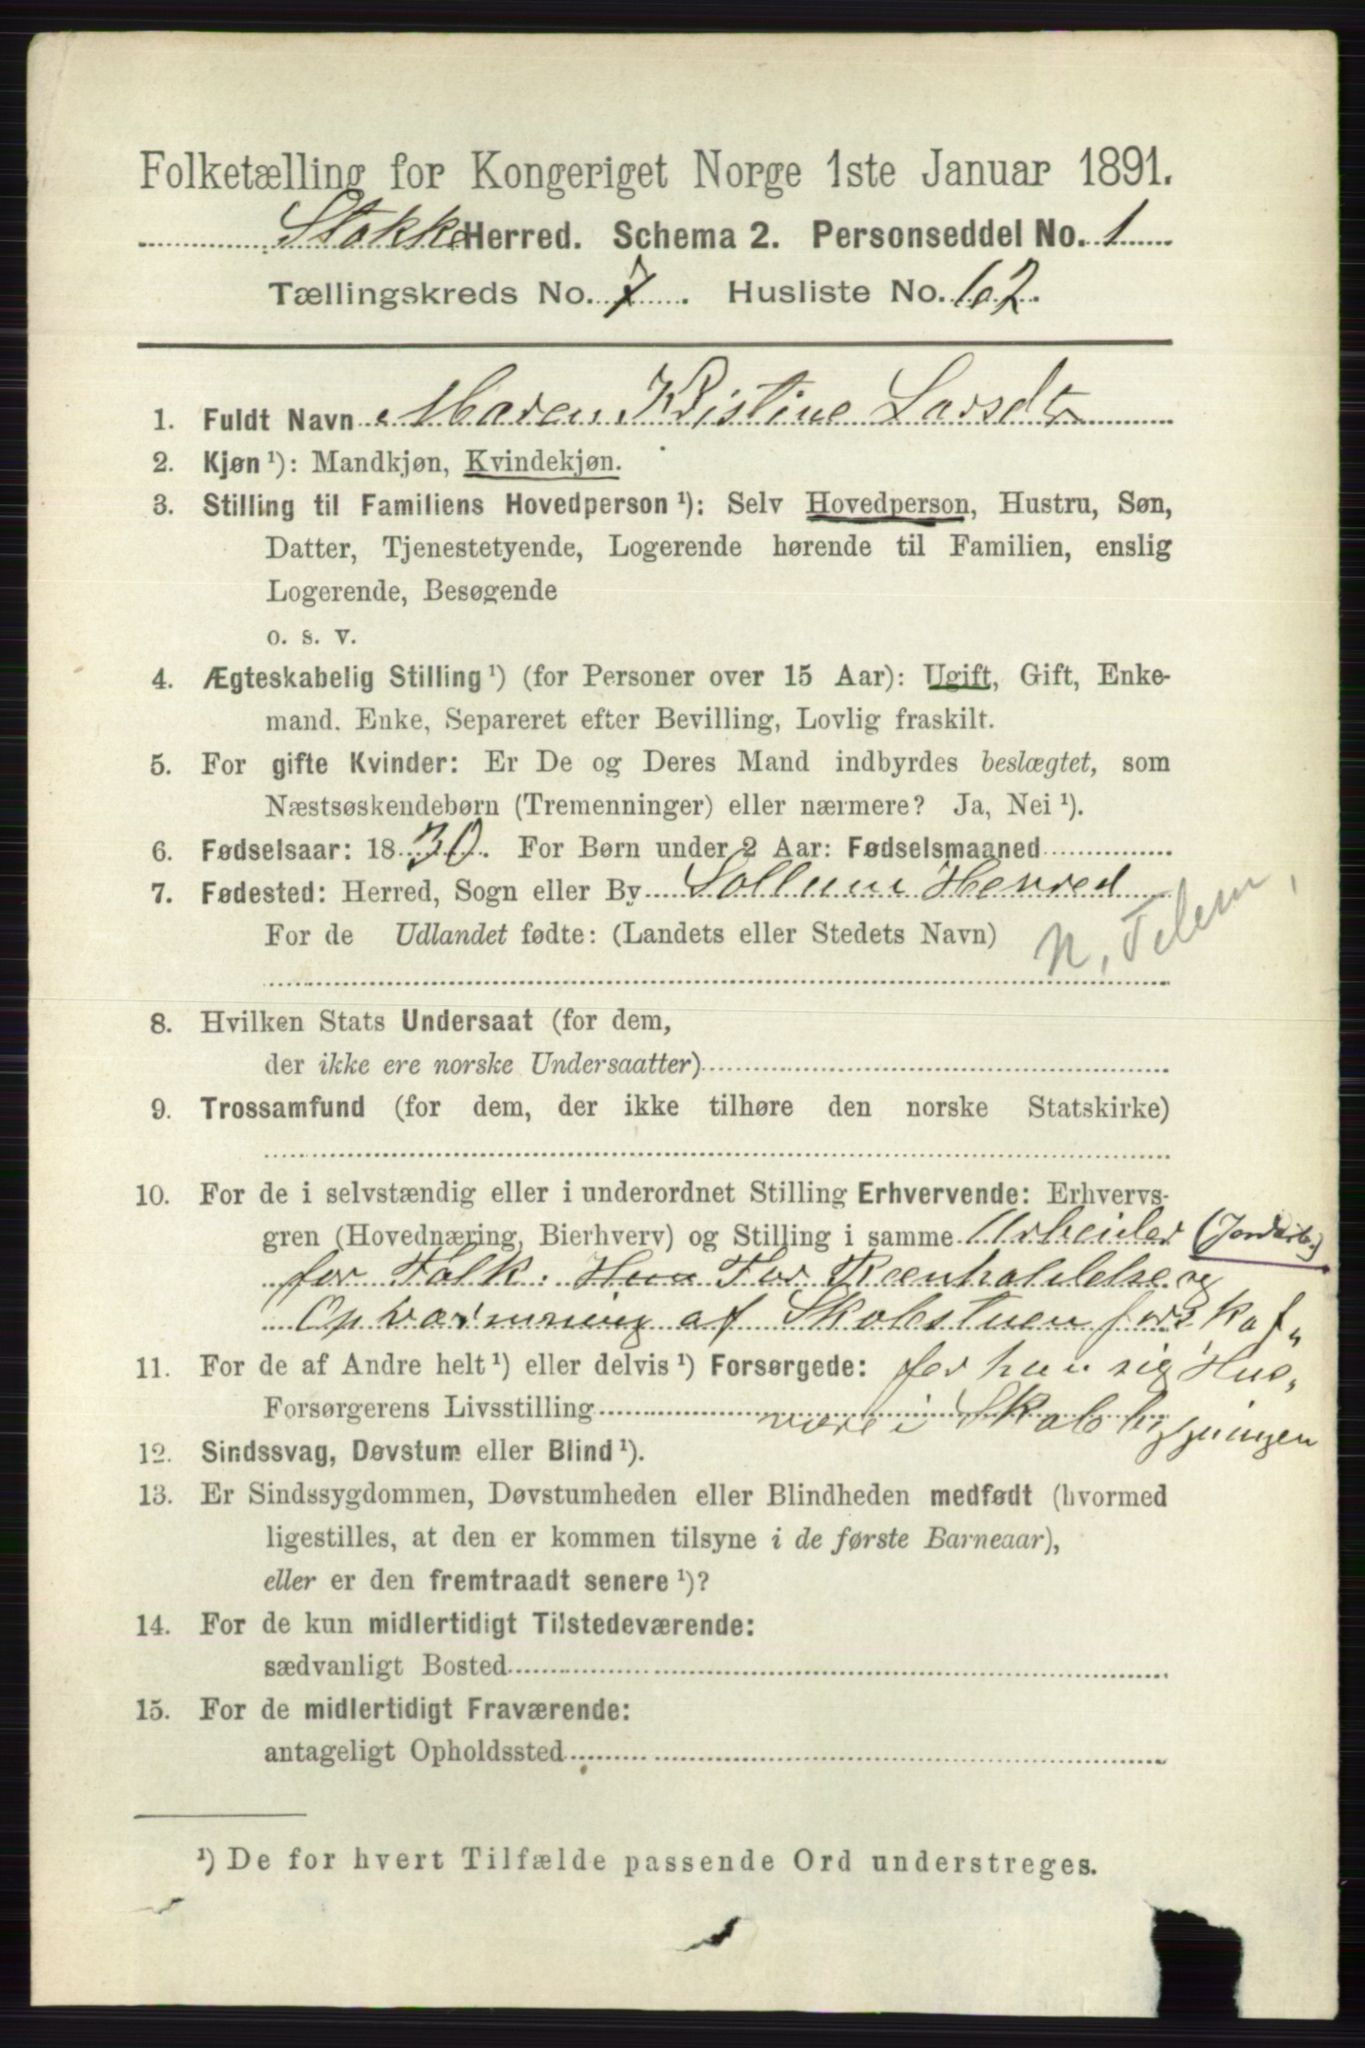 Folketælling for Kongeriget Norge 1ste Januar 1891.
Stokke Herred. Schema 2. Personseddel No. 1
Tællingskreds No. 7. Husliste No. 62.
1. Fuldt Navn Maren Kristine Larsdtr
2. Kjøn ¹): Mandkjøn, Kvindekjøn.
3. Stilling til Familiens Hovedperson ¹): Selv Hovedperson, Hustru, Søn,
Datter, Tjenestetyende, Logerende hørende til Familien, enslig
Logerende, Besøgende
o. s. v.
4. Ægteskabelig Stilling ¹) (for Personer over 15 Aar): Ugift, Gift, Enke-
mand. Enke, Separeret efter Bevilling, Lovlig fraskilt.
5. For gifte Kvinder: Er De og Deres Mand indbyrdes beslægtet, som
Næstsøskendebørn (Tremenninger) eller nærmere? Ja, Nei ¹).
6. Fødselsaar: 1830. For Børn under 2 Aar: Fødselsmaaned
7. Fødested: Herred, Sogn eller By Sollum Herred
For de Udlandet fødte: (Landets eller Stedets Navn) N. Telem,
8. Hvilken Stats Undersaat (for dem,
der ikke ere norske Undersaatter)
9. Trossamfund (for dem, der ikke tilhøre den norske Statskirke)
10. For de i selvstændig eller i underordnet Stilling Erhvervende: Erhvervs-
gren (Hovednæring, Bierhverv) og Stilling i samme Arbeider (Jordarb.)
for Folk. Hun For Reenholdelse og
Opvarmning af Skolestuen forskaf„
11. For de af Andre helt ¹) eller delvis ¹) Forsørgede: fer hun sig Hus„
Forsørgerens Livsstilling være i Skolebygningen
12. Sindssvag, Døvstum eller Blind ¹).
13. Er Sindssygdommen, Døvstumheden eller Blindheden medfødt (hvormed
ligestilles, at den er kommen tilsyne i de første Barneaar),
eller er den fremtraadt senere ¹)?
14. For de kun midlertidigt Tilstedeværende:
sædvanligt Bosted
15. For de midlertidigt Fraværende:
antageligt Opholdssted
¹) De for hvert Tilfælde passende Ord understreges.